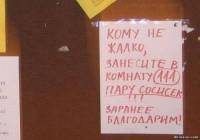 КОМУ НЕ
ЖАЛКО,
ЗАНЕСИТЕ В
КОМНАТУ 111
ПАРУ СОСИСЕК
!!!
ЗАРАНЕЕ
БЛАГОДАРИМ!